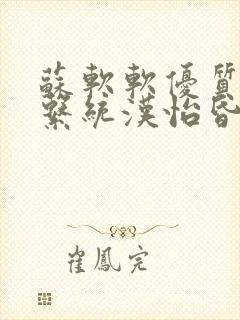 蘇軟軟優質
繫統漢怡昏
崔鳳完